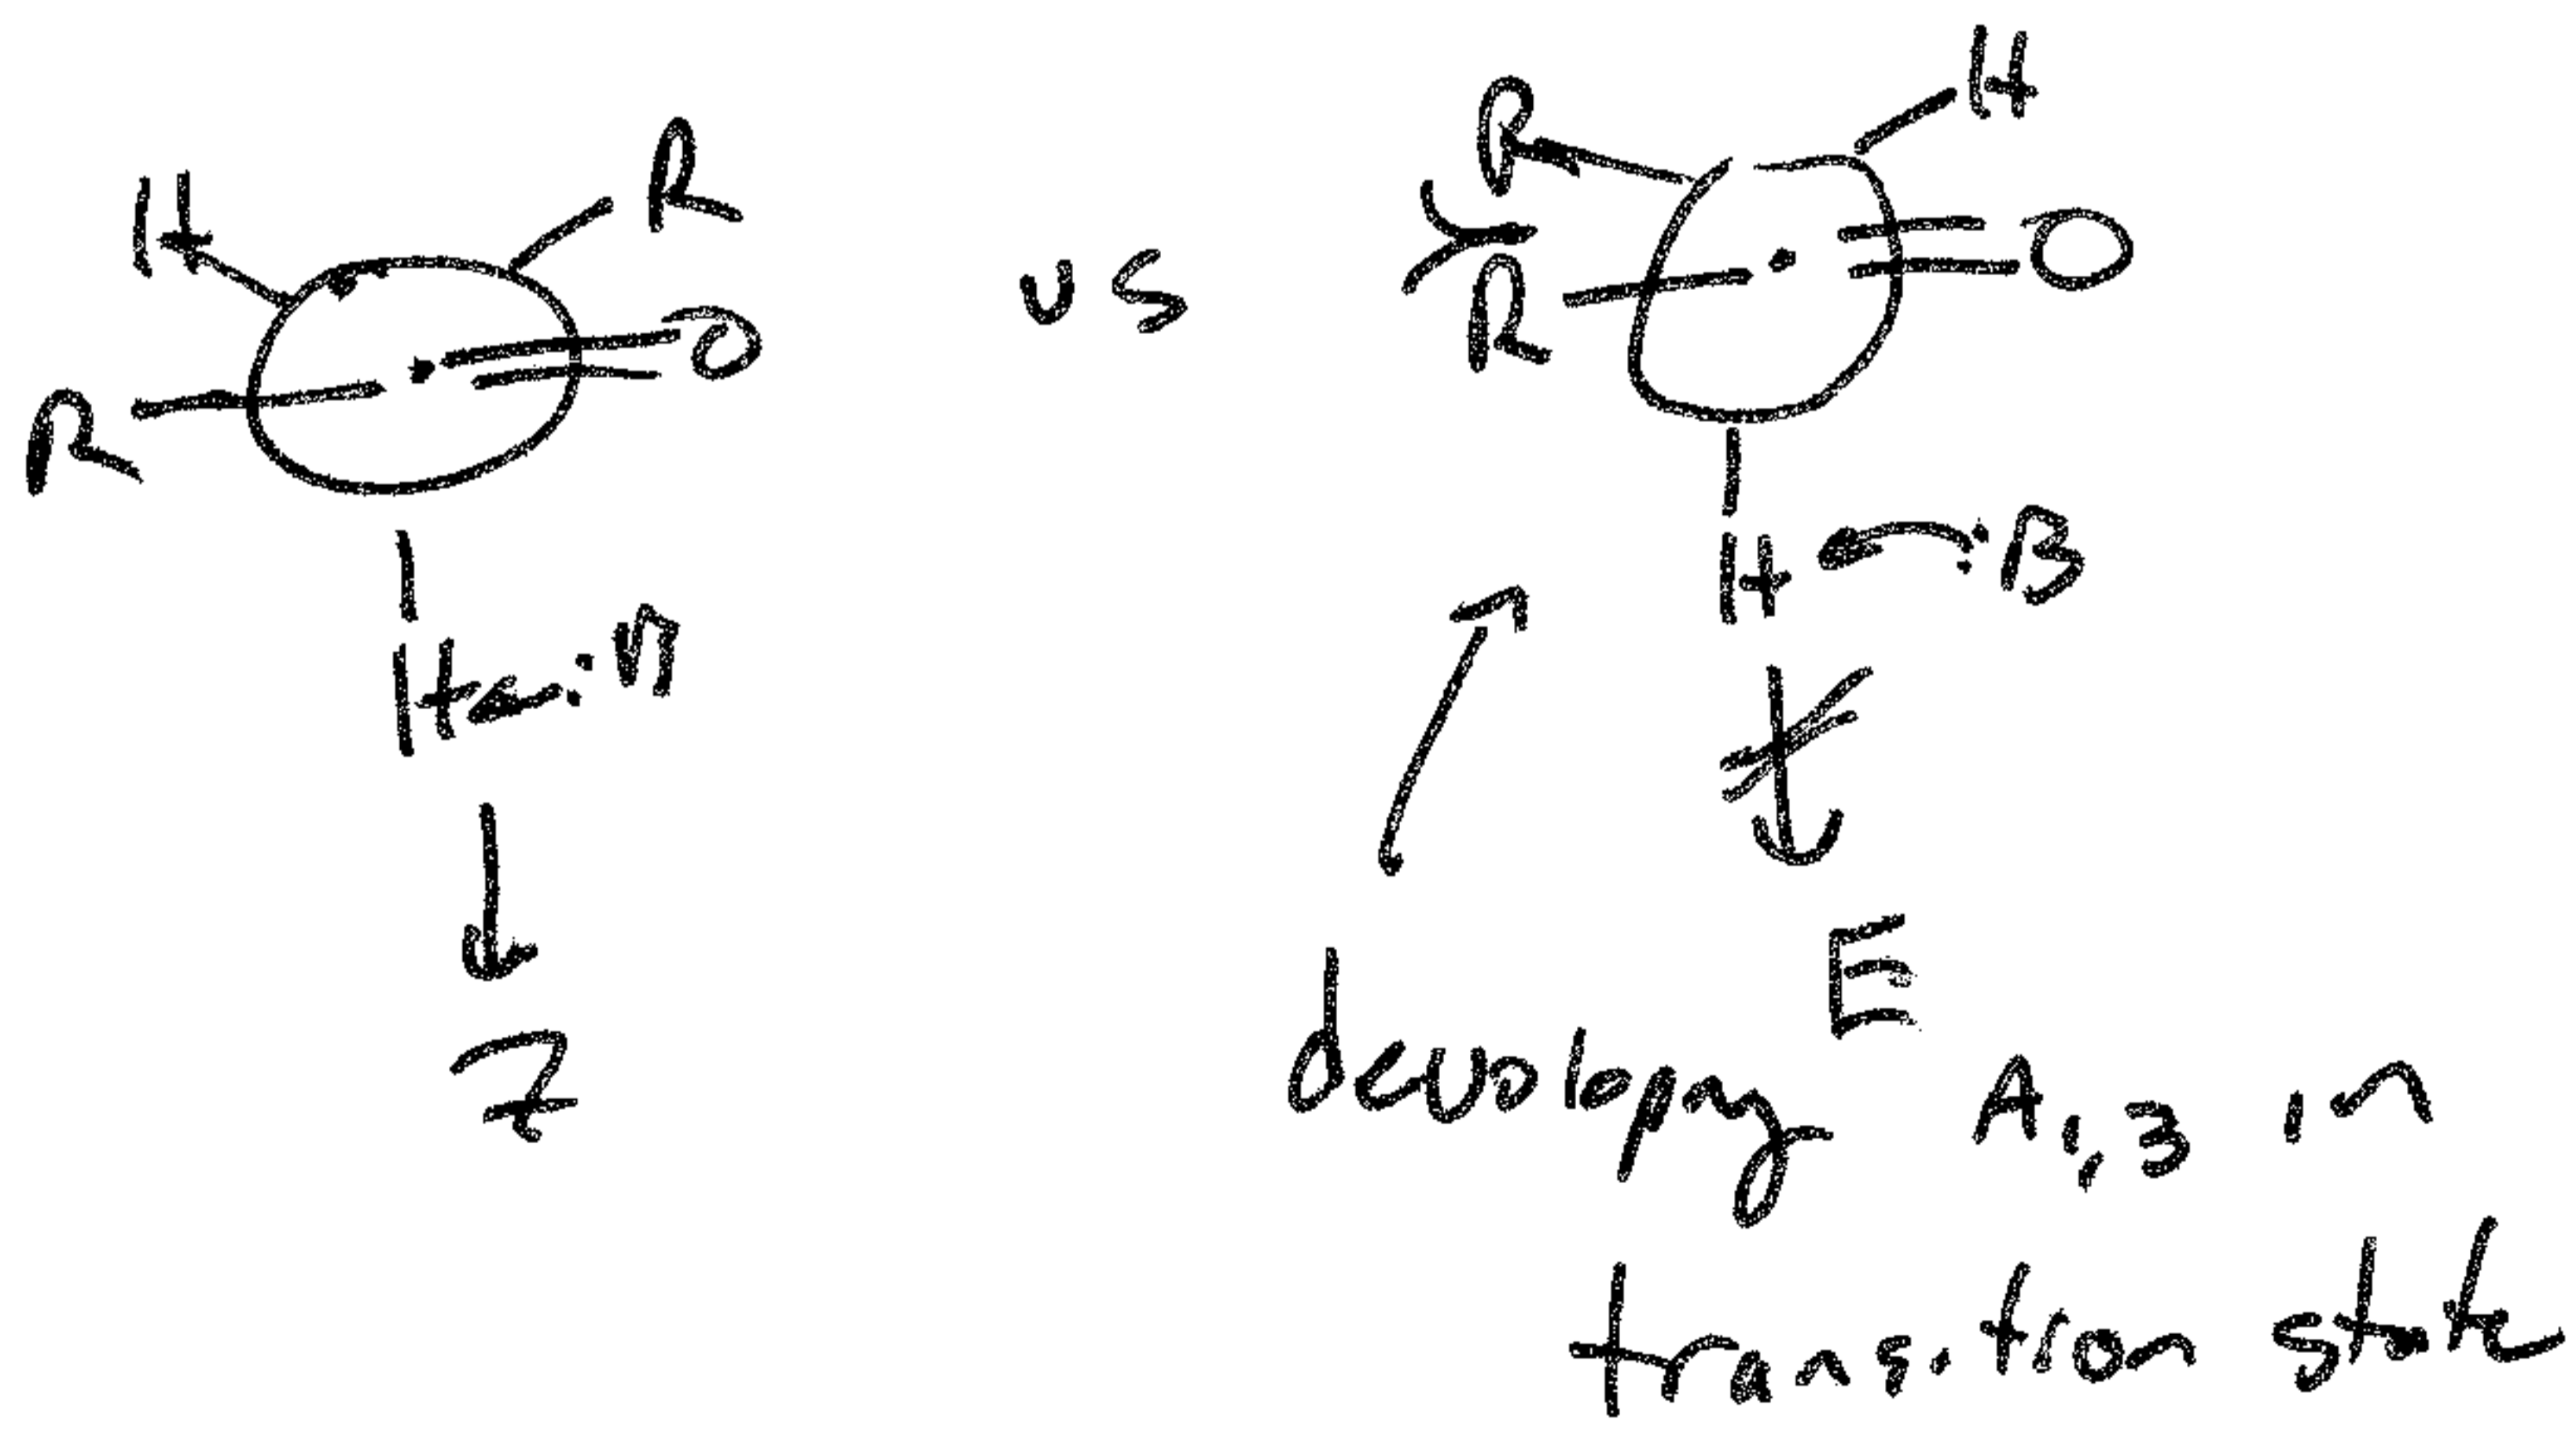 H R
R O
vs
R H
R O
H :B
H
Z
E
developing A1,3 in
transition state